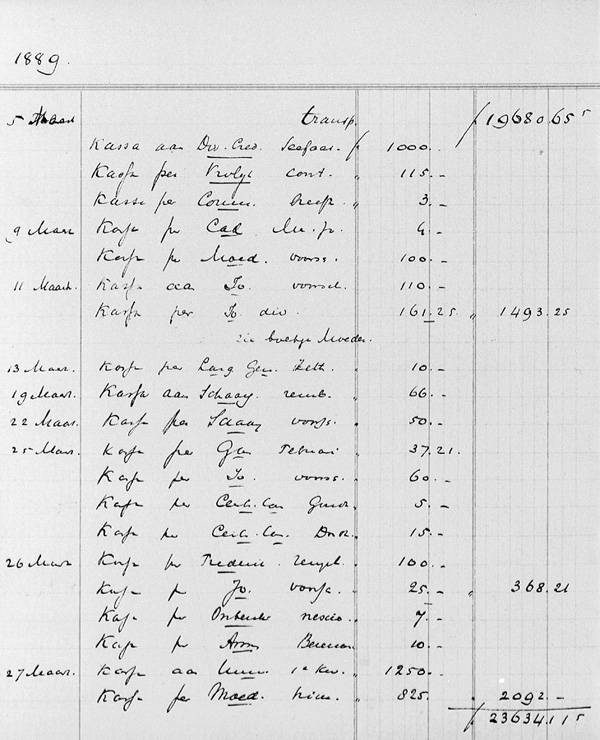 1889.
5 Maart transp. f 19680.65⁵
Kassa aan Div. Cred. f 1000.-
Kassa per cont. " 115.-
Kassa per Comm. " 3.-
9 Maart Kassa per Cad. " 4.-
Kassa per Moed. voors. " 100.-
11 Maart. Kassa aan Jo. voorsch. " 110.-
Kassa per Jo. div. " 161.25 " 1493.25
zie boekje Moeder.
13 Maart. Kassa per Lang Gen. " 10.-
19 Maart. Kassa aan Schaay remb. " 66.-
22 Maart. Kassa per Schaay voors. " 50.-
25 Maart. Kassa per Gas Februari " 37.21.
Kassa per Jo. voors. " 60.-
Kassa per Cert. Can. " 5.-
Kassa per Cert. Can. " 15.-
26 Maart Kassa per Frederic " 100.-
Kassa per Jo. voors. " 25.- " 368.21
Kassa per " 7.-
Kassa per " 10.-
27 Maart. Kassa aan " 1250.-
Kassa per Moed. " 825. " 2092.-
f 23634.11⁵